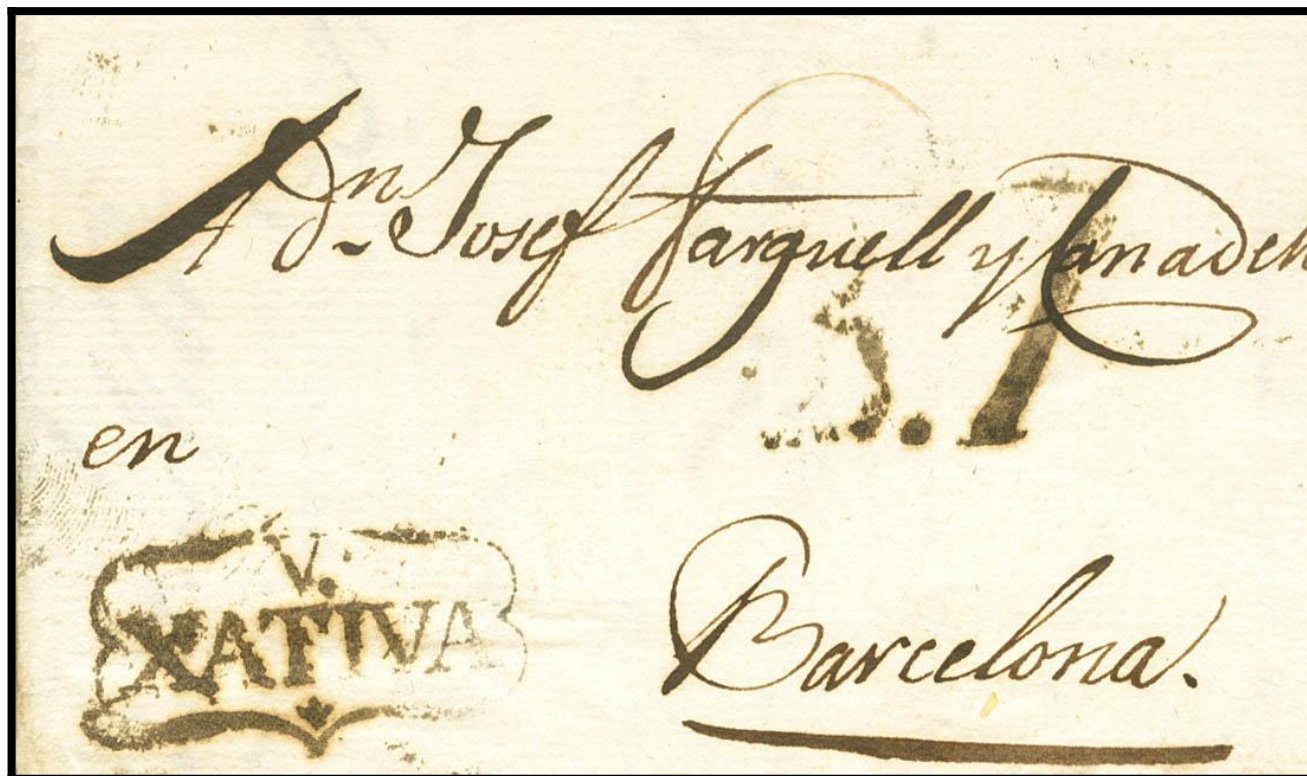 A Dn. Josef Farguell y Canadell
5.7
en
V.
XATIVA
Barcelona.